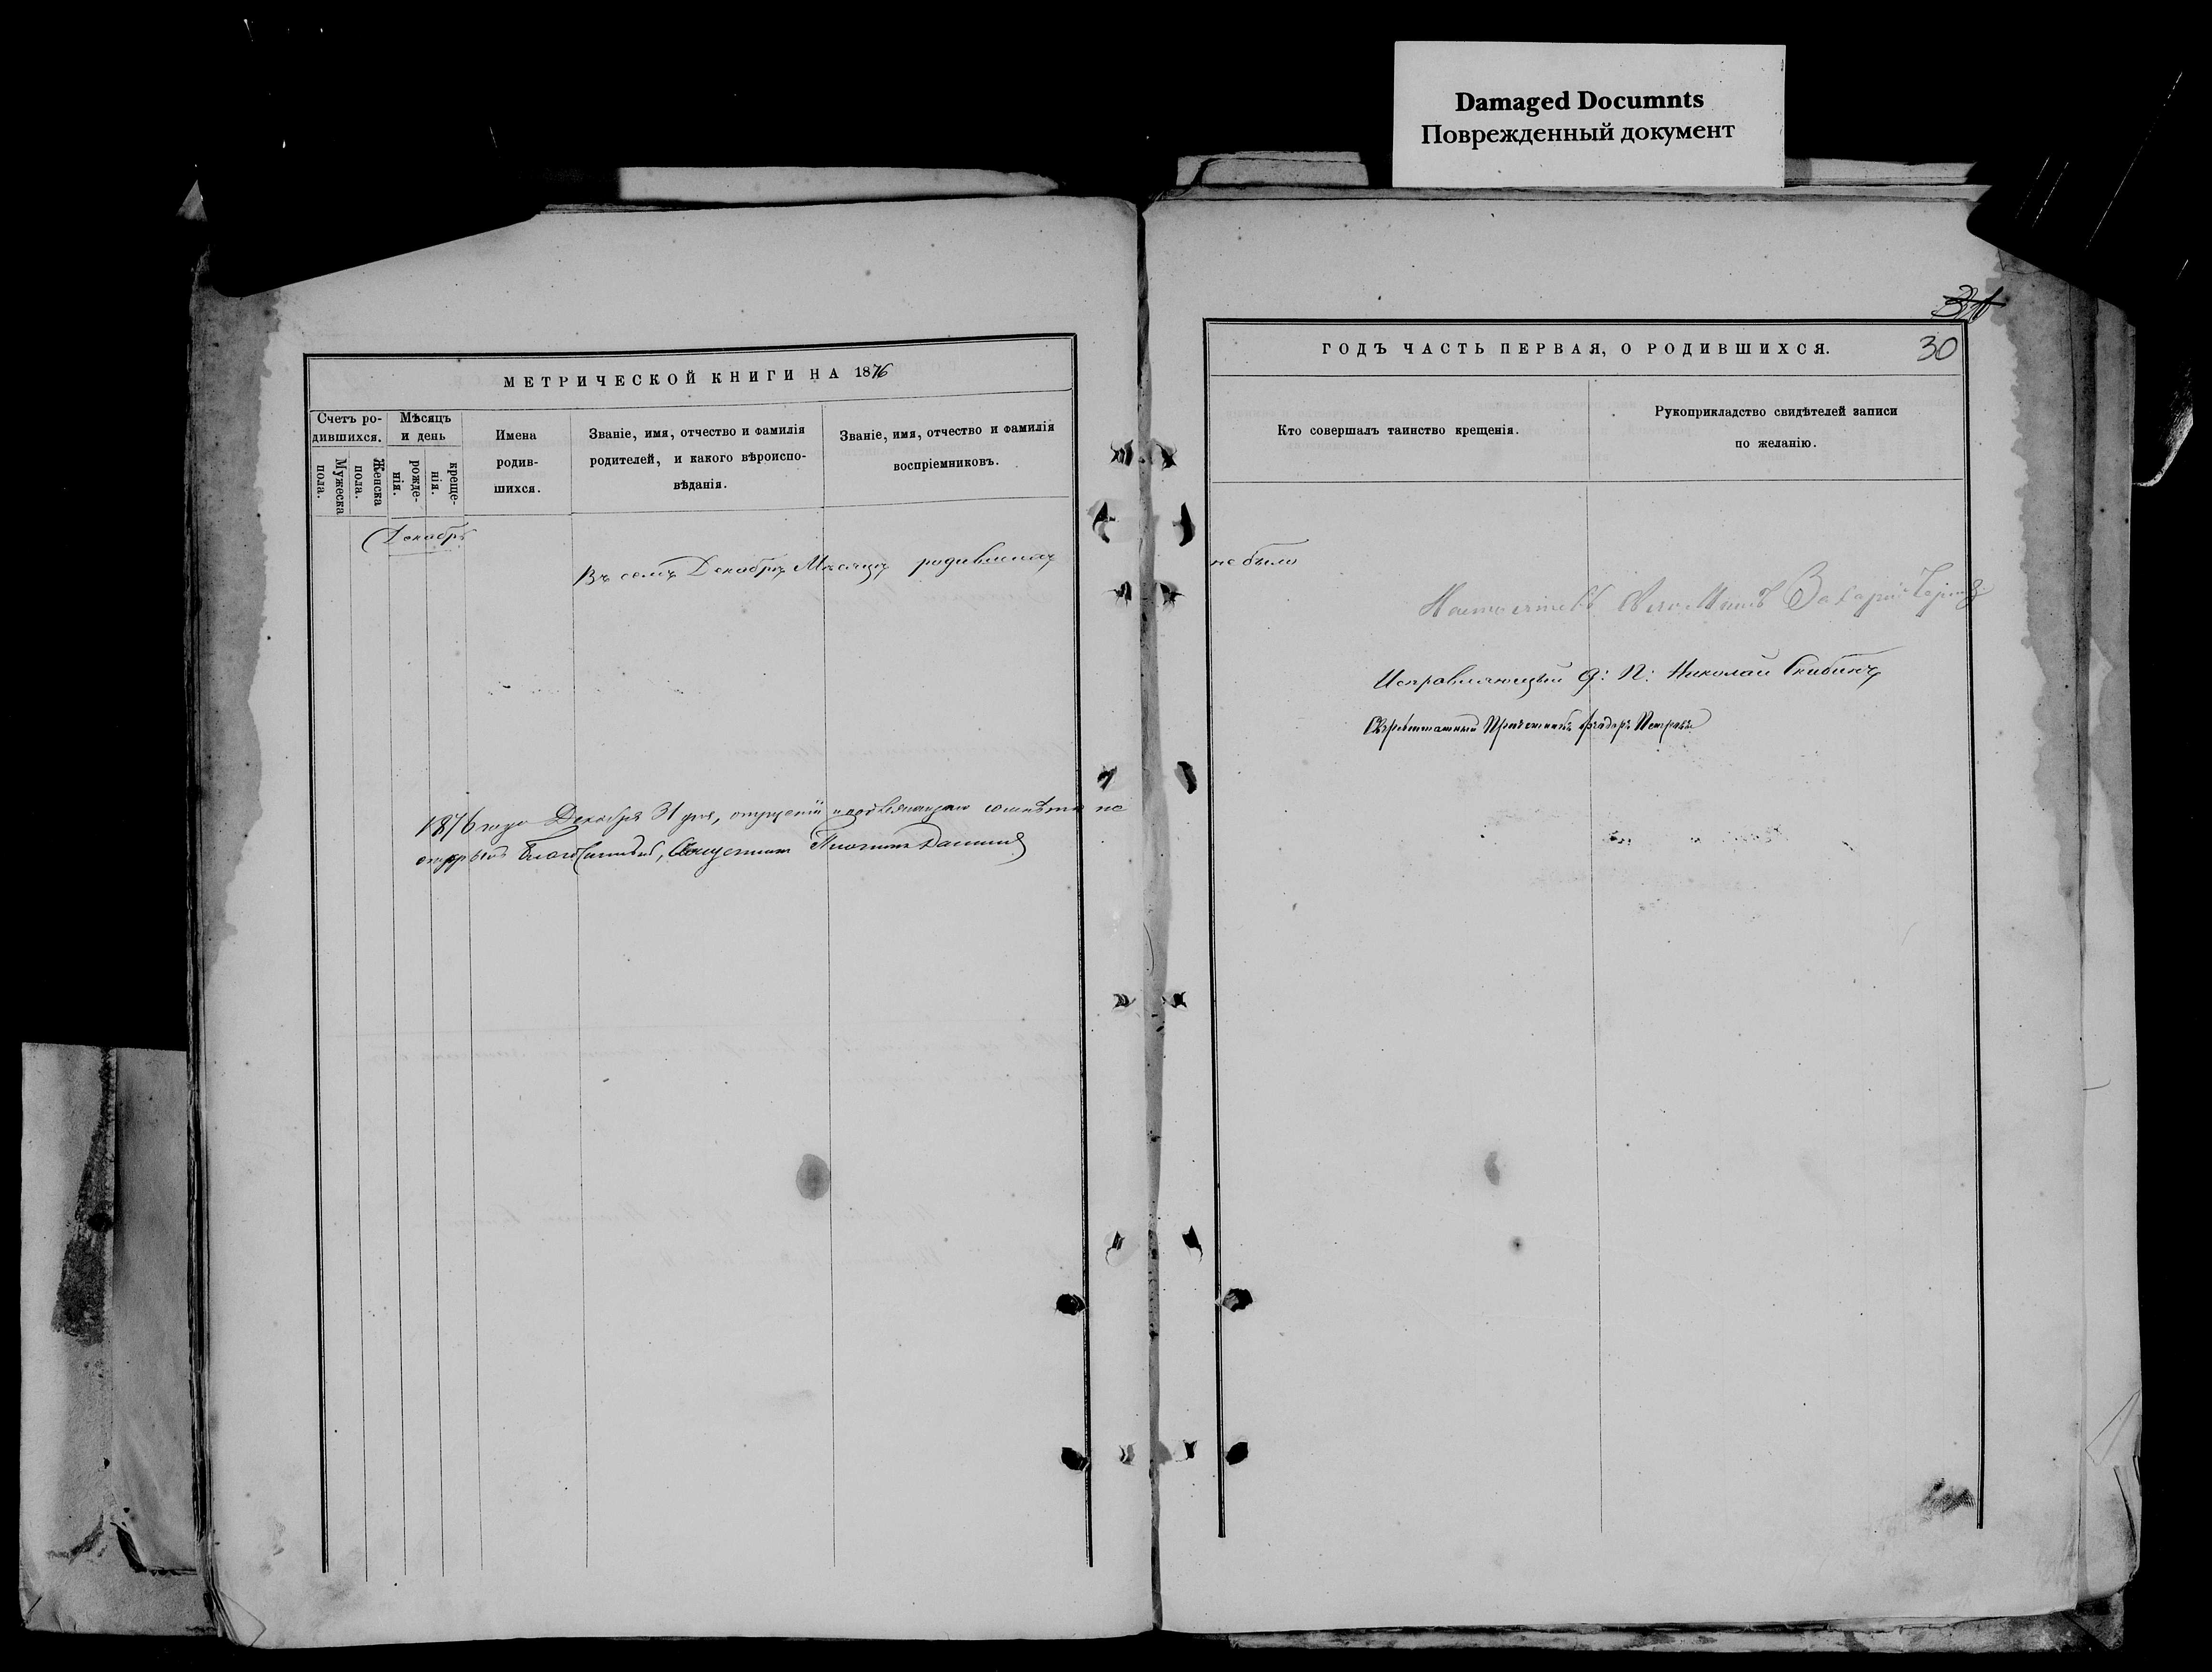 Damaged Documnts
Поврежденный документ
МЕТРИЧЕСКОЙ КНИГИ НА 1876
Счетъ ро-
дившихся.
Мужеска
пола.
Женска
пола.
Мѣсяцъ
и день
рожде-
нія.
креще-
нія.
Имена
родив-
шихся.
Званіе, имя, отчество и фамилія
родителей, и какого вѣроиспо-
вѣданія.
Званіе, имя, отчество и фамилія
воспріемниковъ.
Декабрь
Въ семъ Декабрѣ Мѣсяцѣ родившихся
1876 года Декабря 31 дня, не
Священникъ
30
ГОДЪ ЧАСТЬ ПЕРВАЯ, О РОДИВШИХСЯ.
Кто совершалъ таинство крещенія.
Рукоприкладство свидѣтелей записи
по желанію.
не было
Захарій
Исправляющій д: П: Николай
Сверхштатный Ѳеодоръ Петровъ